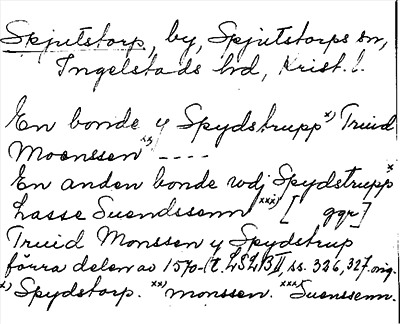 Spjutstorp, by, Spjutstorps sn,
Ingelstads hd, Krist. l.
En bonde y Spydstrupp x) Truid
Monssen xx) ----
En anden bonde vdj Spydstrupp x
Lasse Suendssenn xxx) [ ggr]
Truid Monssen y Spydstrup
förra delen av 1570-t. LSLB II, ss. 326, 327. orig.
x) Spydstorp. xx) monssen. xxx) Suenssenn.